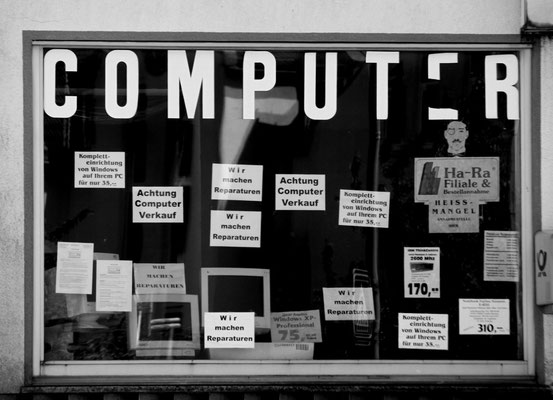 COMPUTER
Komplett-
einrichtung
von Windows
auf Ihrem PC
für nur 35,--
Achtung
Computer
Verkauf
Wir
machen
Reparaturen
Wir
machen
Reparaturen
Achtung
Computer
Verkauf
Komplett-
einrichtung
von Windows
auf Ihrem PC
für nur 35,--
Ha-Ra
Filiale &
Bestellannahme
HEISS-
MANGEL
WIR
MACHEN
REPARATUREN
Wir
machen
Reparaturen
Windows XP-
Professional
75,--
Wir
machen
Reparaturen
2600 Mhz
170,--
Komplett-
einrichtung
von Windows
auf Ihrem PC
für nur 35,--
310,--